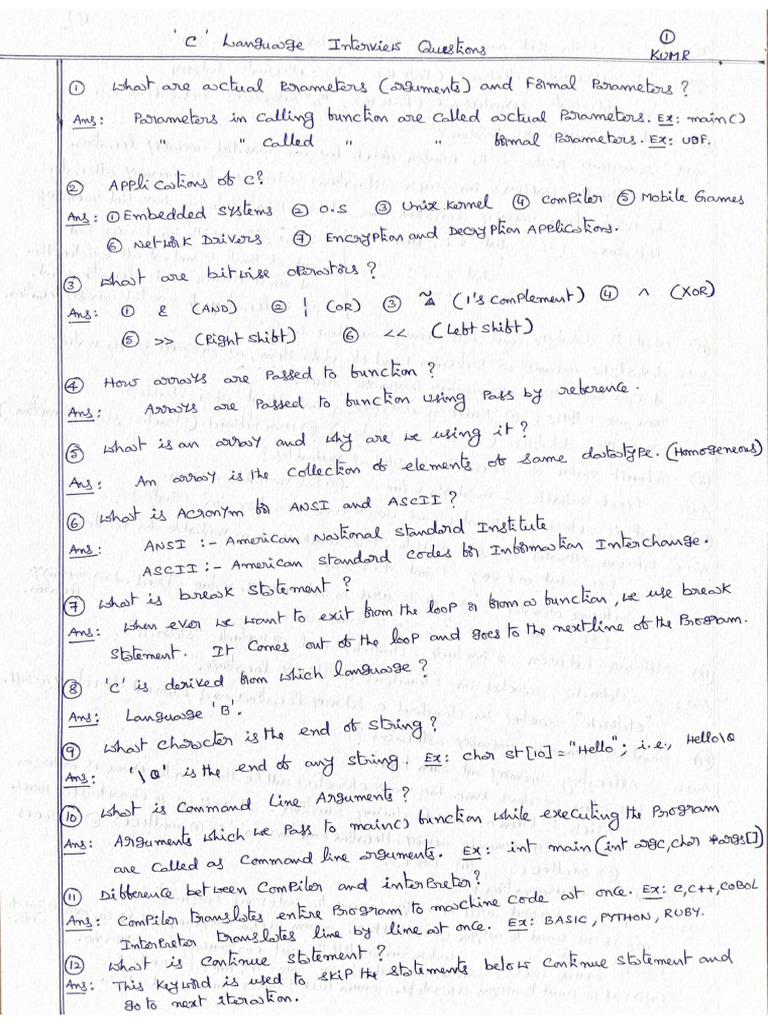 'C' Language Interview Questions
①
KUMR
① What are actual Parameters (arguments) and Formal Parameters?
Ans: Parameters in calling function are called actual Parameters. Ex: main()
" " called " " formal Parameters. Ex: UDF.
② Applications of C?
Ans: ① Embedded Systems ② O.S ③ Unix Kernel ④ Compiler ⑤ Mobile Games
⑥ Network Drivers ⑦ Encryption and Decryption Applications.
③ What are bitwise operators?
Ans: ① & (AND) ② ¦ (OR) ③ ~ (1's complement) ④ ^ (XOR)
⑤ >> (Right shift) ⑥ << (Left shift)
④ How arrays are Passed to function?
Ans: Arrays are Passed to function using Pass by reference.
⑤ What is an array and why are we using it?
Ans: An array is the collection of elements of same datatype. (Homogeneous)
⑥ What is Acronym for ANSI and ASCII?
Ans: ANSI :- American National Standard Institute
ASCII :- American standard codes for Information Interchange.
⑦ What is break statement?
Ans: When ever we want to exit from the loop or from a function, we use break
statement. It comes out of the loop and goes to the nextline of the Program.
⑧ 'C' is derived from which language?
Ans: Language 'B'.
⑨ What character is the end of string?
Ans: '\0' is the end of any string. Ex: char st[10] = "Hello"; i.e., Hello\0
⑩ What is Command Line Arguments?
Ans: Arguments which we Pass to main() function while executing the Program
are called as Command line arguments. Ex: int main(int argc, char *args[])
⑪ Difference between Compiler and interpreter?
Ans: Compiler translates entire Program to machine code at once. Ex: C, C++, COBOL
Interpreter translates line by line at once. Ex: BASIC, PYTHON, RUBY.
⑫ What is Continue statement?
Ans: This keyword is used to skip the statements below continue statement and
go to next iteration.